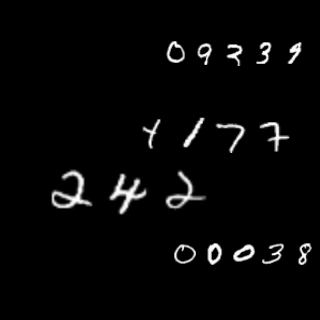 09239
4177
242
00038